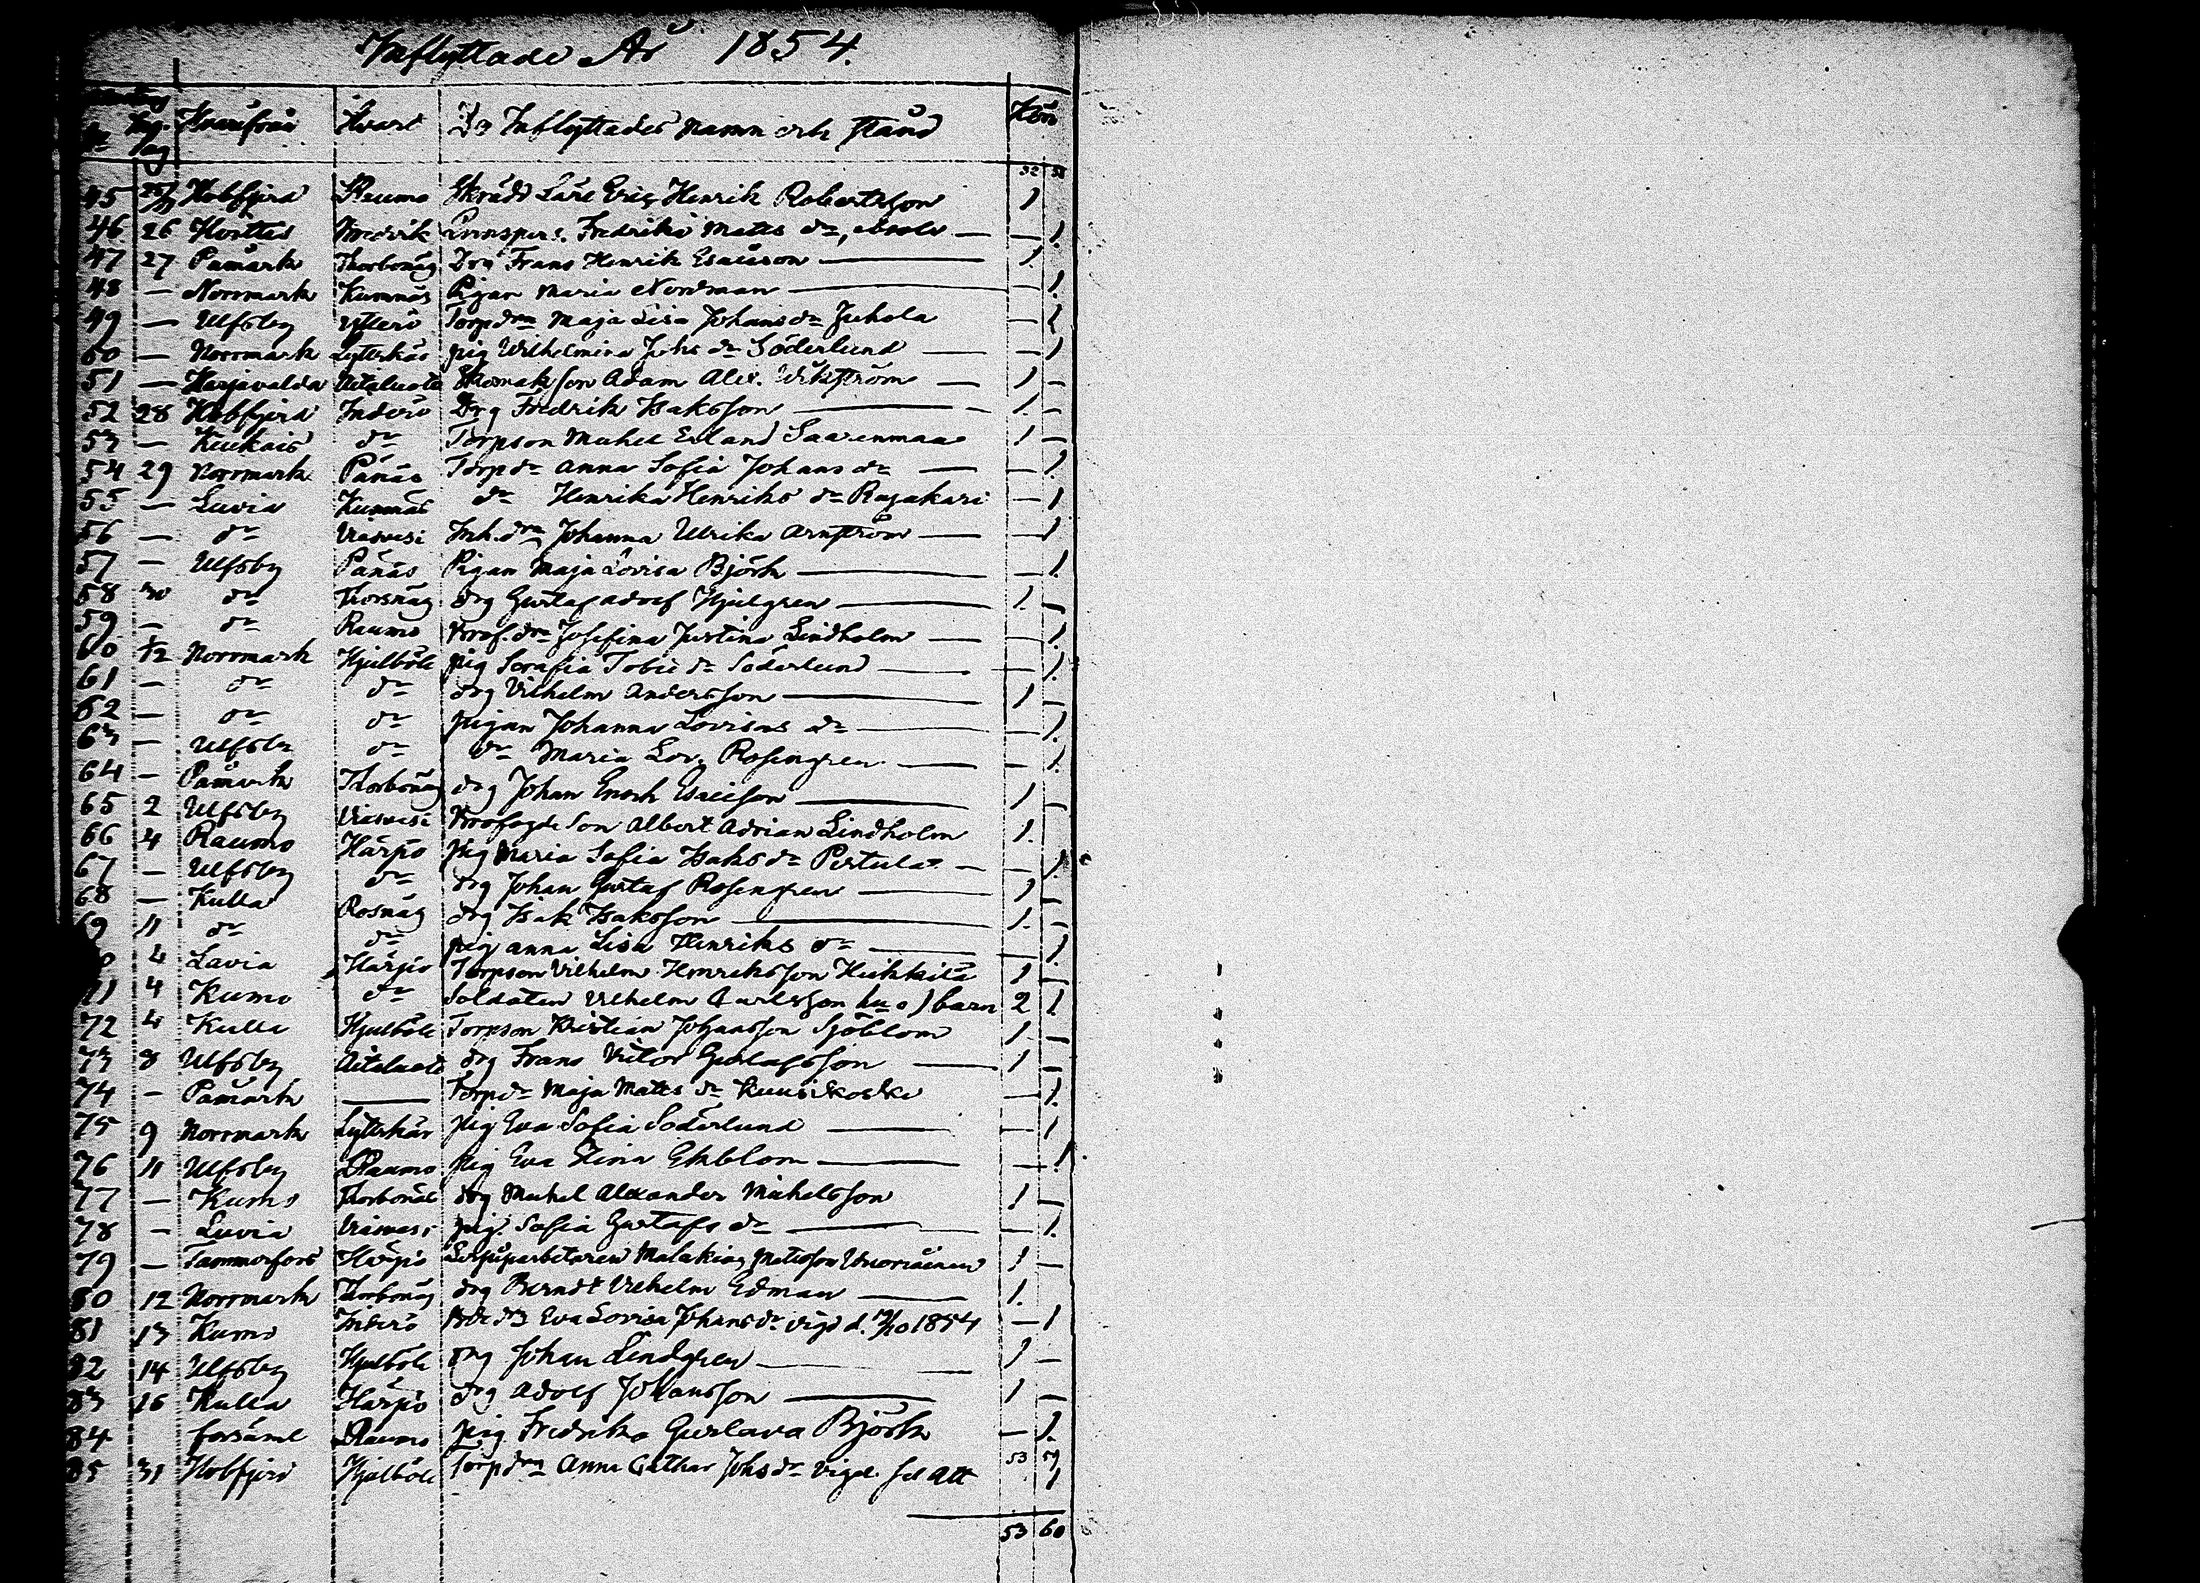 Inflyttade År 1854.
Hvarifrån Hvart De Inflyttades namn och stånd Kön
32 38
45 25/11 Hvbfjerd Raumo Skrädd Lärl Eric Henrik Robertsson 1
46 26 Hvittis Fredrika Matts dr, — — 1.
47 27 Påmark Thorbonäs Drg Frans Henrik Esaiasson — 1.
48 — Norrmark Kumnäs Pigan Maria Nordman — — 1.
49 — Ulfsby Ytterö Torp drn Maja Lisa Johans dr Juhola — 1
50 — Norrmark Lytterkär pig Wilhelmina Johs dr Söderlund — — 1
51 — Harjavalda Aitaluoto Skomak son Adam Alex. Wikström — 1 —
52 28 Hvbfjerd Inderö Drg Fredrik Isaksson — 1. —
53 — Kiukais dr Torpson Michel Erland Saarenmaa 1 —
54 29 Norrmark Pänäs Torp dr Anna Sofia Johans dr — — 1
55 — Luvia Kumnäs dr Henrika Henriks dr Rajakari — 1
56 — dr Viasvesi Inh. drn Johanna Ulrika Arnström — — 1
57 — Ulfsby Pänäs Pigan Maja Lovisa Björk — — 1.
58 30 dr Torsnäs drg Gustaf Adolf Hjulgren — 1. —
59 — dr Raumo Krof. drn Josefina Justina Lindholm — — 1
60 1/12 Norrmark Hjulböle pig Serafia Tobie dr Söderlund — — 1.
61 — dr dr drg Vilhelm Andersson — 1 —
62 — dr dr pigan Johanna Lovisas dr — — 1.
63 — Ulfsby dr dr Maria Lov. Rosengren — — 1.
64 — Påmark Thorbonäs drg Johan Enoch Esaisson — 1 —
65 2 Ulfsby Viasvesi Krofogde Son Albert Adrian Lindholm 1.
66 4 Raumo Härpö pig Maria Sofia Isaks dr Pertula — — 1
67 — Ulfsby dr drg Johan Gustaf Rosengren — 1 —
68 — Kulla Rosnäs drg Isak Isaksson — 1. —
69 11 dr dr pig Anna Lisa Henriks dr — — 1.
70 4 Lavia Härpö Torpson Vilhelm Henriksson Heikkilä 1 —
71 4 Kumo dr Soldaten Vilhelm Carlsson hu o 1 barn 2 1
72 4 Kulla Hjulböle Torpson Kristian Johansson Sjöblom 1. —
73 8 Ulfsby Aitaluoto drg Frans Victor Gustafsson — 1 —
74 — Påmark — Torp dr Maja Matts dr Kuusikoski — 1.
75 9 Norrmark Lytterkär pig Eva Sofia Söderlund — — 1
76 11 Ulfsby Raumo pig Eva Stina Ekblom — — 1.
77 — Kumo Thorbonäs drg Michel Alexander Michelsson 1 —
78 — Luvia Viasvesi pig. Sofia Gustafs dr — — 1.
79 — Tammerfors Härpö Malakias Matsson 1 —
80 12 Norrmark Thorbonäs drg Berndt Vilhelm Edman — 1.
81 13 Kumo Inderö Bde dr Eva Lovisa Johans dr vigd d. /10 1854 — 1
82 14 Ulfsby Hjulböle drg Johan Lindgren — 1 —
83 16 Kulla Härpö drg Adolf Johansson — 1 —
84 forsaml Raumo pig Fredrika Gustava Björk — 1.
53 59
85 31 Hvbfjerd Hjulböle Torp drn Anna Cathar Johs dr vigd. sed Att 1
53 60